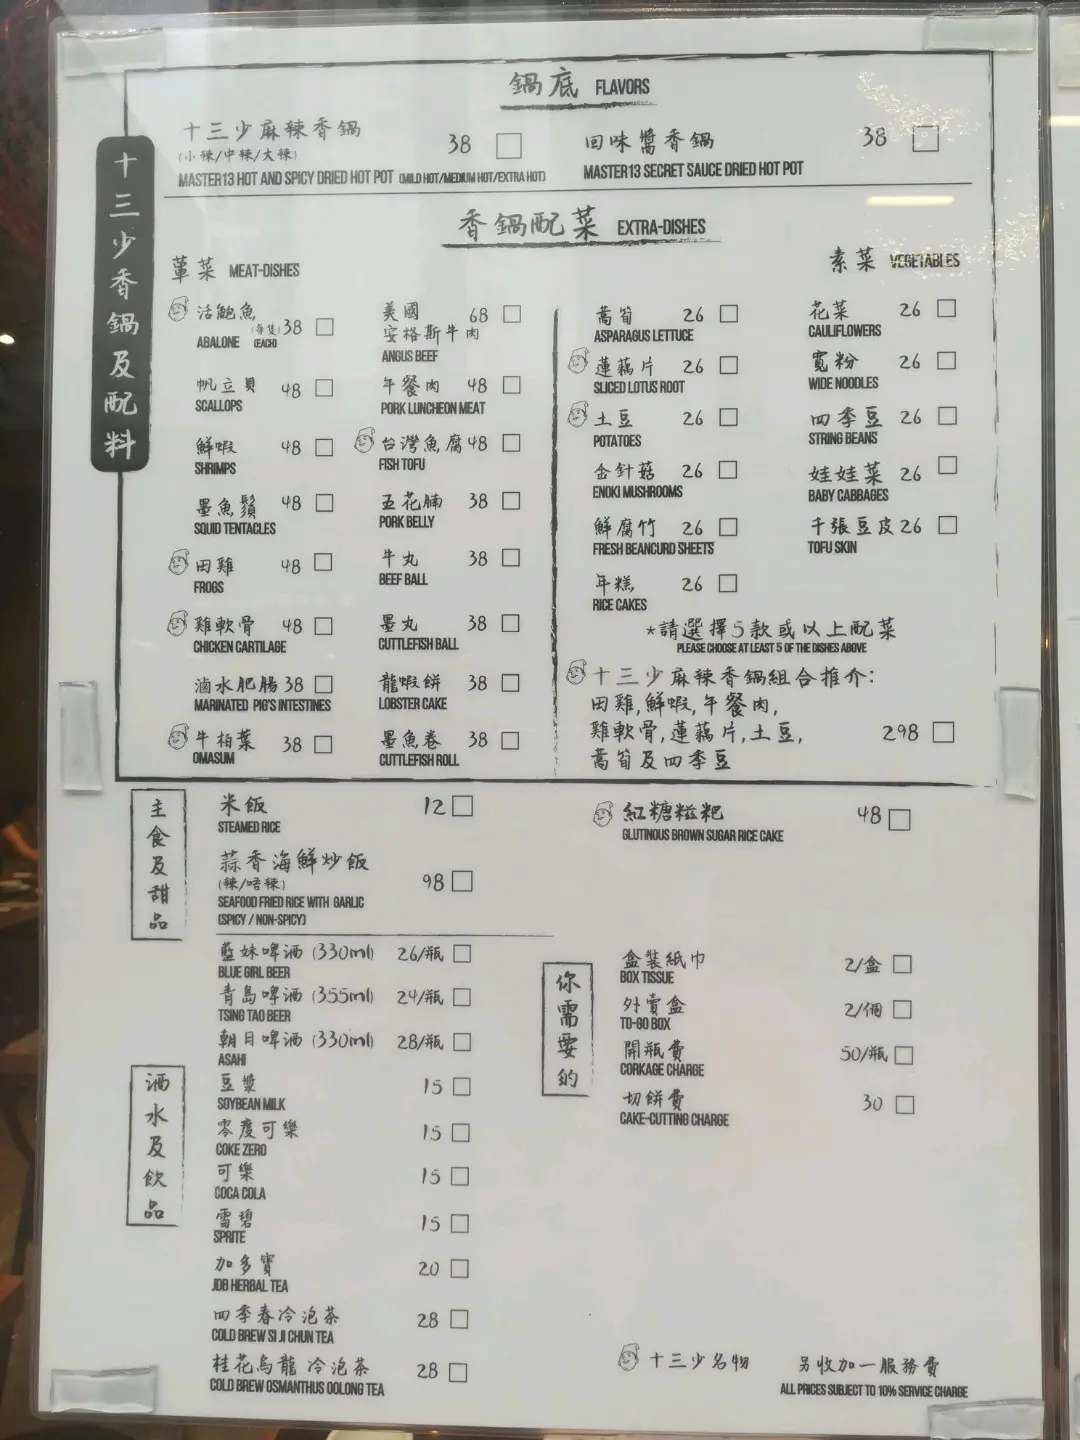 十三少香鍋及配料
鍋底 FLAVORS
十三少麻辣香鍋 38
(小辣/中辣/大辣)
MASTER13 HOT AND SPICY DRIED HOT POT (MILD HOT/MEDIUM HOT/EXTRA HOT)
回味醬香鍋 38
MASTER13 SECRET SAUCE DRIED HOT POT
香鍋配菜 EXTRA-DISHES
葷菜 MEAT-DISHES
活鮑魚 (每隻) 38
ABALONE (EACH)
帆立貝 48
SCALLOPS
鮮蝦 48
SHRIMPS
墨魚鬚 48
SQUID TENTACLES
田雞 48
FROGS
雞軟骨 48
CHICKEN CARTILAGE
滷水肥腸 38
MARINATED PIG'S INTESTINES
牛柏葉 38
OMASUM
美國 68
安格斯牛肉
ANGUS BEEF
午餐肉 48
PORK LUNCHEON MEAT
台灣魚腐 48
FISH TOFU
五花腩 38
PORK BELLY
牛丸 38
BEEF BALL
墨丸 38
CUTTLEFISH BALL
龍蝦餅 38
LOBSTER CAKE
墨魚卷 38
CUTTLEFISH ROLL
素菜 VEGETABLES
萵筍 26
ASPARAGUS LETTUCE
蓮藕片 26
SLICED LOTUS ROOT
土豆 26
POTATOES
金針菇 26
ENOKI MUSHROOMS
鮮腐竹 26
FRESH BEANCURD SHEETS
年糕 26
RICE CAKES
花菜 26
CAULIFLOWERS
寬粉 26
WIDE NOODLES
四季豆 26
STRING BEANS
娃娃菜 26
BABY CABBAGES
千張豆皮 26
TOFU SKIN
*請選擇5款或以上配菜
PLEASE CHOOSE AT LEAST 5 OF THE DISHES ABOVE
十三少麻辣香鍋組合推介:
田雞,鮮蝦,午餐肉,
雞軟骨,蓮藕片,土豆, 298
萵筍及四季豆
主食及甜品
米飯 12
STEAMED RICE
蒜香海鮮炒飯
(辣/唔辣) 98
SEAFOOD FRIED RICE WITH GARLIC
(SPICY / NON-SPICY)
紅糖糍粑 48
GLUTINOUS BROWN SUGAR RICE CAKE
酒水及飲品
藍妹啤酒 (330ml) 26/瓶
BLUE GIRL BEER
青島啤酒 (355ml) 24/瓶
TSING TAO BEER
朝日啤酒 (330ml) 28/瓶
ASAHI
豆漿 15
SOYBEAN MILK
零度可樂 15
COKE ZERO
可樂 15
COCA COLA
雪碧 15
SPRITE
加多寶 20
JDB HERBAL TEA
四季春冷泡茶 28
COLD BREW SI JI CHUN TEA
桂花烏龍冷泡茶 28
COLD BREW OSMANTHUS OOLONG TEA
你需要的
盒裝紙巾 2/盒
BOX TISSUE
外賣盒 2/個
TO-GO BOX
開瓶費 50/瓶
CORKAGE CHARGE
切餅費 30
CAKE-CUTTING CHARGE
十三少名物
另收加一服務費
ALL PRICES SUBJECT TO 10% SERVICE CHARGE